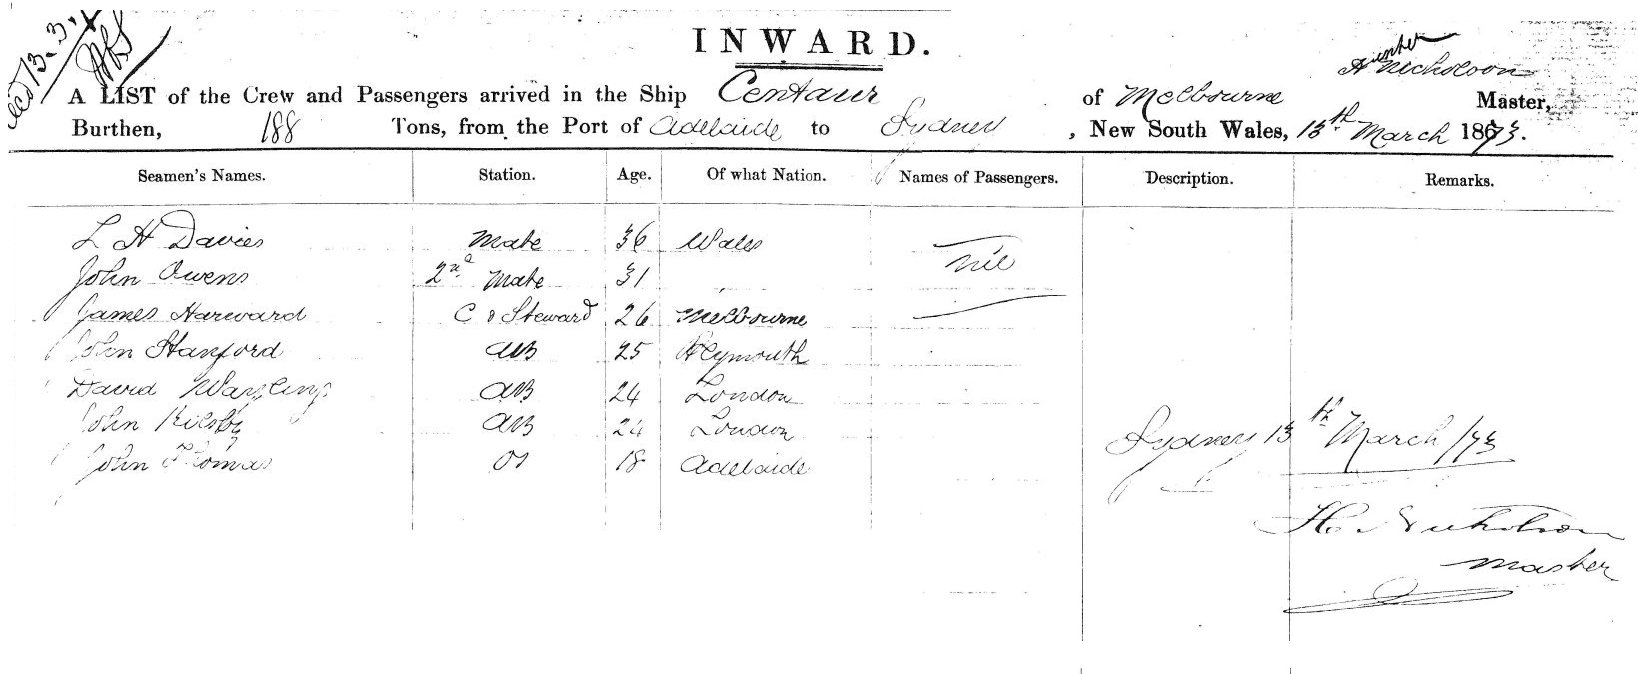 INWARD.
Hunter
H Nicholson
A LIST of the Crew and Passengers arrived in the Ship Centaur of Melbourne Master,
Burthen, 188 Tons, from the Port of Adelaide to Sydney, New South Wales, 13th March 1873.
Seamen's Names. Station. Age. Of what Nation. Names of Passengers. Description. Remarks.
L H Davies Mate 36 Wales
nil
John Owens 2nd Mate 31 "
James Harward C & Steward 26 Melbourne
John Stanford AB 25 Plymouth
David AB 24 London
John AB 24 London
Sydney 13th March /73
John Thomas OS 18 Adelaide
H. Nicholson
Master